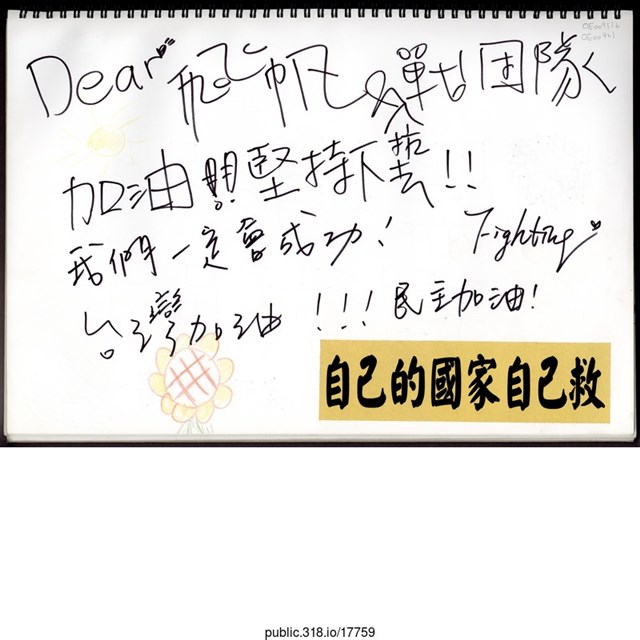 Dear 飛帆&戰鬥團隊
加油!!!堅持下去!!
我們一定會成功!
Fighting
台灣加油!!!民主加油!
自己的國家自己救
public.318.io/17759